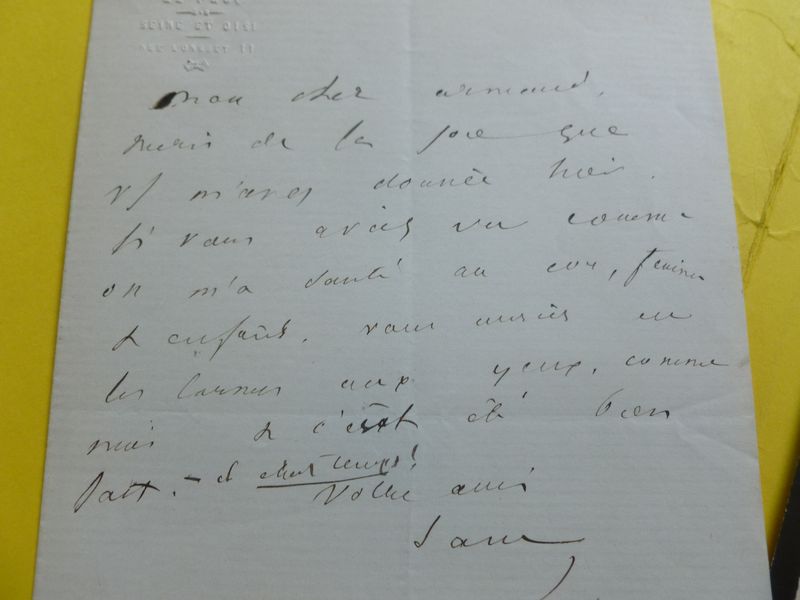 SEINE ET OISE
mon cher armand,
merci de la joie que
vs m'avez donnée hier.
si vous aviez vu comme
on m'a sauté au cou, femme
& enfants, vous auriez eu
les larmes aux yeux, comme
moi & c'eût été bien
fait. - et
Votre ami